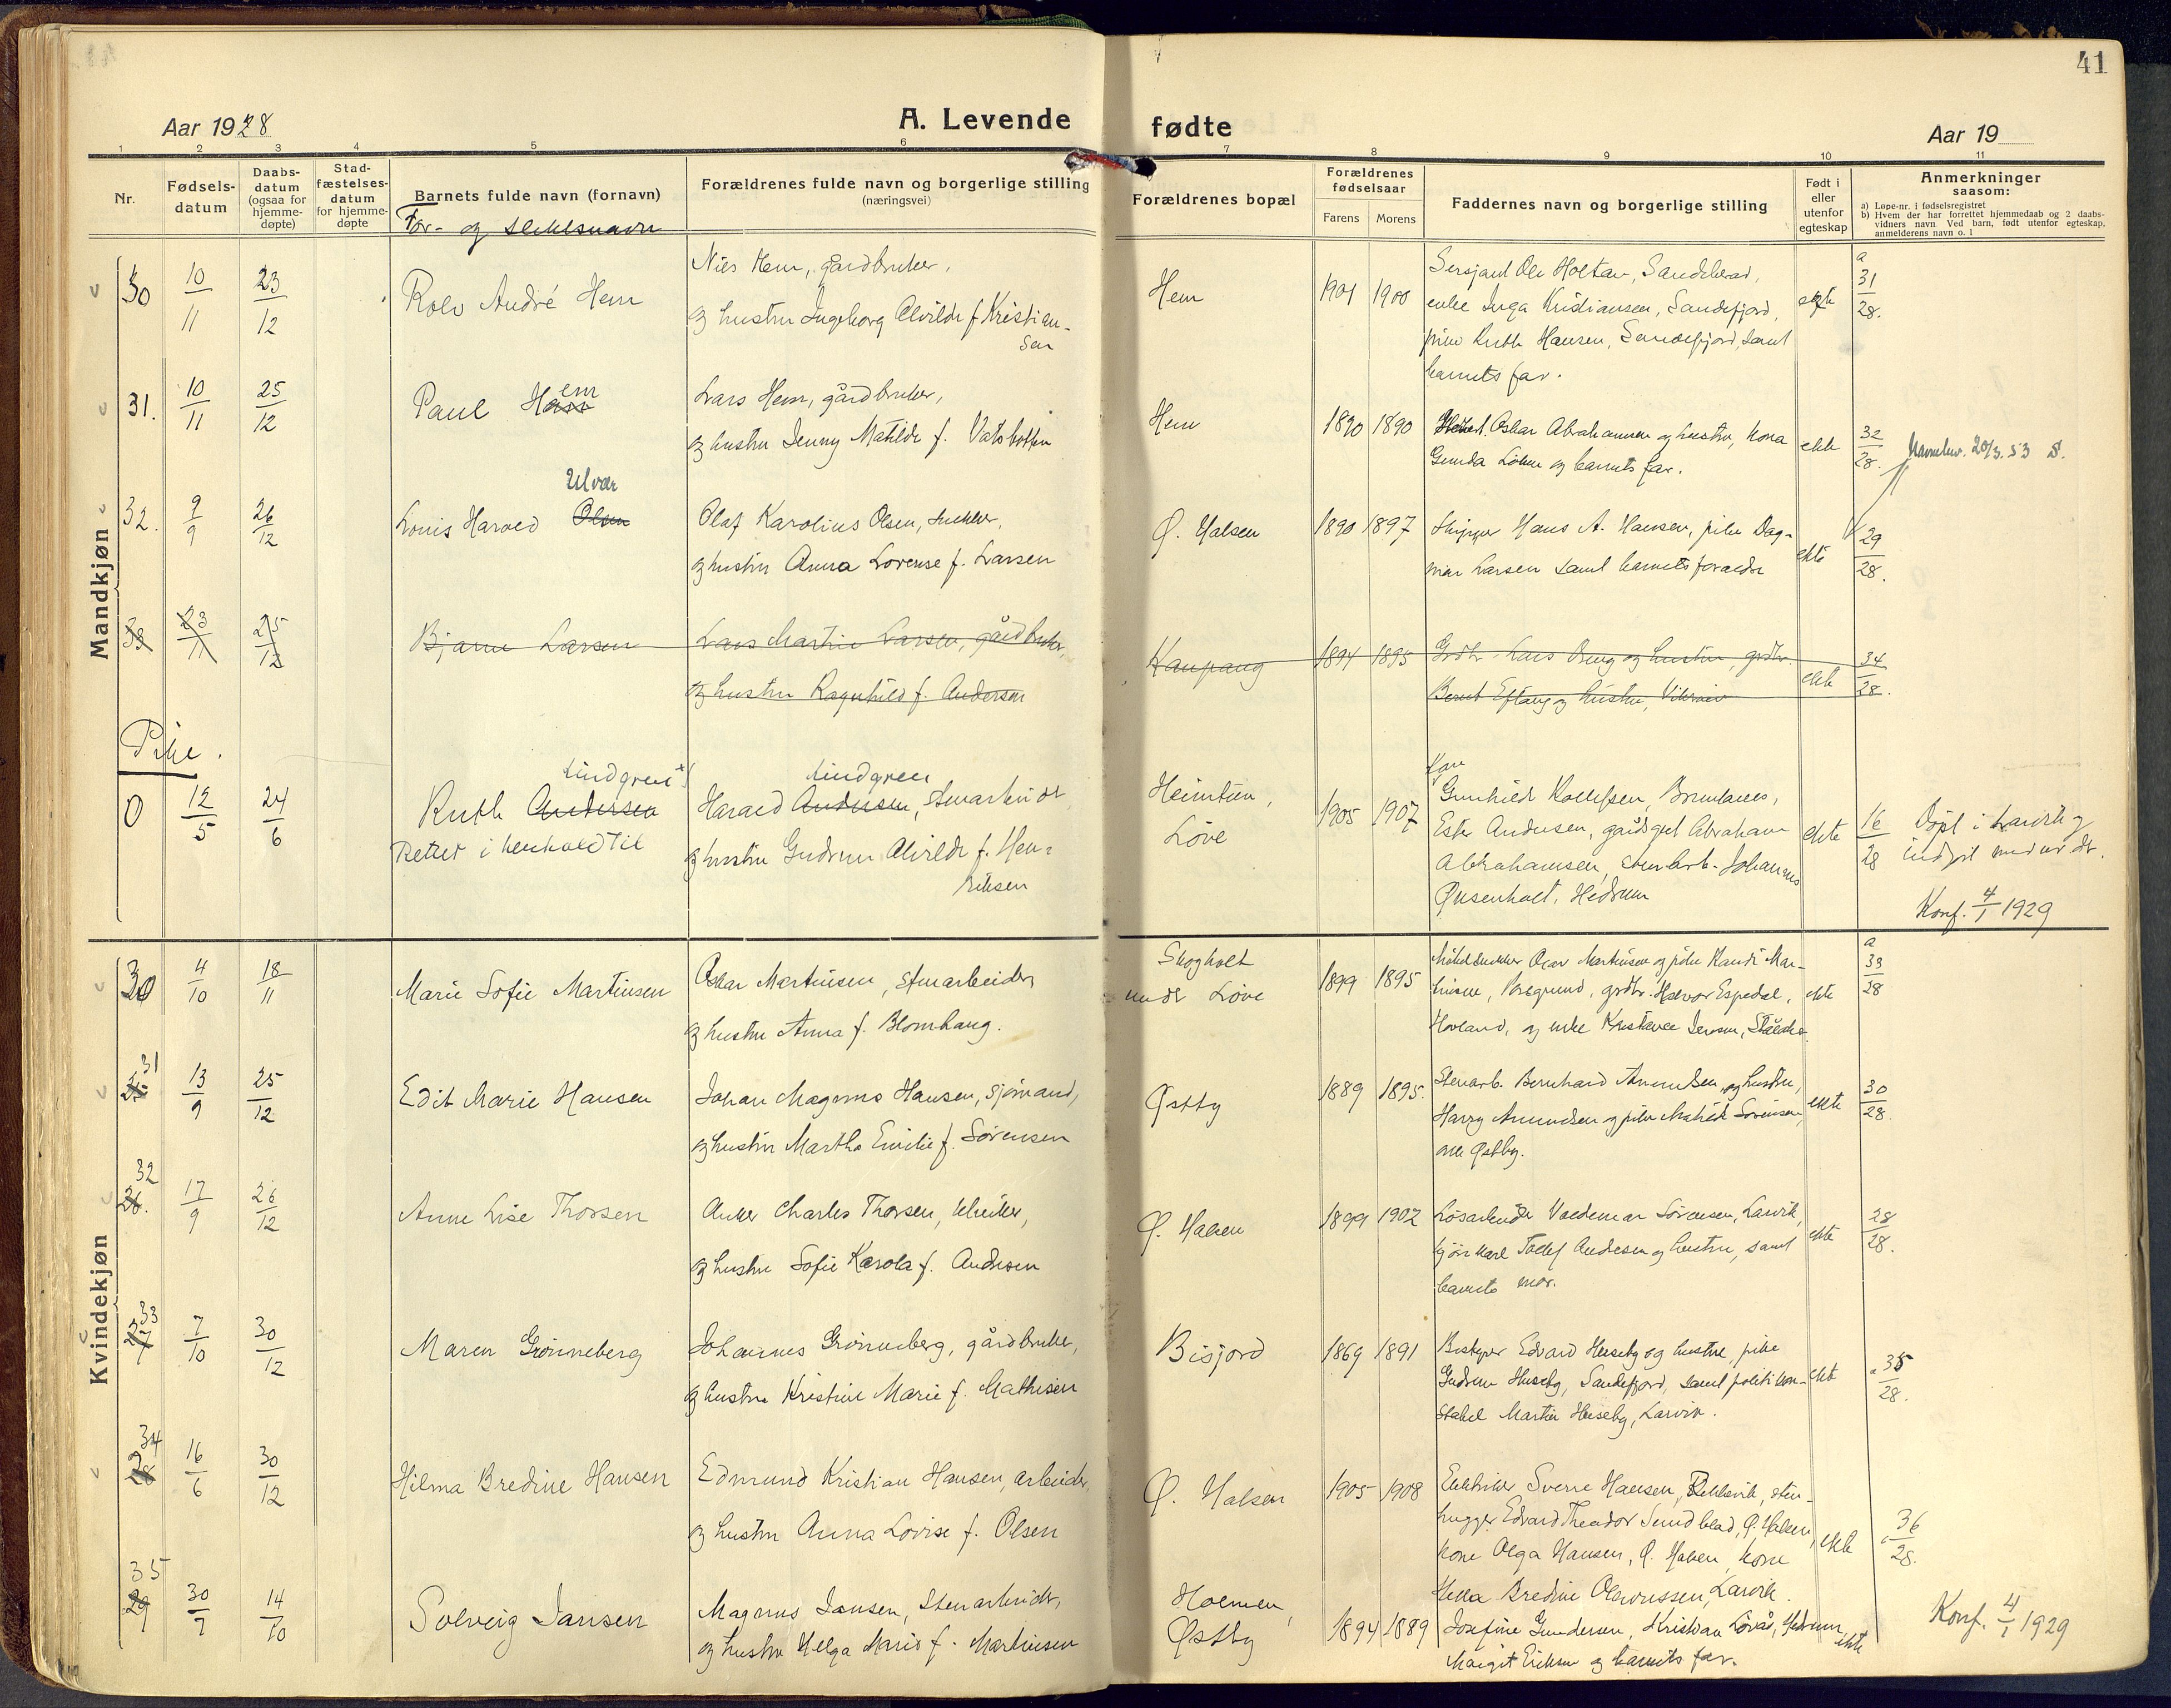 41
Aar 1928
A. Levende fødte
Aar 19
1 2 3 4 5 6 7 8 9 10 11
Nr.
Fødsels-
datum
Daabs-
datum
(ogsaa for
hjemme-
døpte)
Stad-
fæstelses-
datum
for hjemme-
døpte
Barnets fulde navn (fornavn)
For- og slektsnavn
Forældrenes fulde navn og borgerlige stilling
(næringsvei)
Forældrenes bopæl
Forældrenes
fødselsaar
Farens Morens
Faddernes navn og borgerlige stilling
Født i
eller
utenfor
egteskap
Anmerkninger
saasom:
a) Løpe-nr. i fødselsregistret
b) Hvem der har forrettet hjemmedaab og 2 daabs-
vidners navn. Ved barn, født utenfor egteskap,
anmelderens navn o. l
Mandkjøn
30 10/11 23/12 Rolv André Hem
Nils Hem, gårdbruker,
og hustru Ingeborg Alvilde f. Kristian-
sen
Hem 1901 1900
Sersjant Ole Holtan, Sandeherad,
enke Inga Kristiansen, Sandefjord,
pike Ruth Hansen, Sandefjord, samt
barnets far.
ekte
a 31/28.
31. 10/11 25/12 Paul Ham em
Lars Hem, gårdbruker,
og hustru Jenny Matilde f. Vatsbotten
Hem 1890 1890
Oskar Abrahamsen og hustru, kona
Gunda Løken og barnets far.
ekte 32/28. Navnebev. 20/3. 53 S.
32. 9/9 26/12 Louis Harald Olsen Ulvær
Olaf Karolius Olsen, snekker,
og hustru Anna Lovense f. Larsen
Ø. Halsen 1890 1897
Skipper Hans A. Hansen, pike Dag-
mar Larsen samt barnets foreldre
ekte 29/28.
33 23/11 25/12 Bjarne Larsen
Lars Martin Larsen, gårdbruker,
og hustru Ragnhild f. Andersen
Kaupang 1894 1895
Grdbr. Lars Bryg og hustru, grdbr.
Bernt Eftang og hustru, Viksveien
ekte 34/28.
Pike.
0 12/5 24/6 Ruth Andersen Lindgren
Rettet i henhold til
Harald Andersen Lindgren, stenarbeider
og hustru Gudrun Alvilde f. Hen-
riksen
Heimtun,
Løve
1905 1907
Fru
Gunhild Kollefsen, Brunlanes,
Ester Andersen, gårdsgut Abraham
Abrahamsen, stenarb. Johannes
Øksenholt, Hedrum
ekte 16/28 Døpt i Larvik og
indført under der.
Konf. 4/1 1929
Kvindekjøn
30 4/10 18/11 Marie Sofie Martinsen
Oskar Martinsen, stenarbeider,
og hustru Anna f. Blomhaug.
Skogholt
under Løve
1899 1895
Møbelsnekker Oskar Martinsen og pike Randi Mar-
tinsen, Porsgrund, grdbr. Halvor Espedal,
Hovland, og enke Kristence Jensen, Ståláker.
ekte
a 33/28
31 25 13/9 25/12 Edit Marie Hansen
Johan Magnus Hansen, sjømand,
og hustru Martha Emilie f. Sørensen
Østby 1889 1895.
Stenarb. Bernhard Amundsen og hustru,
Harry Amundsen og pike Mathilde Sørensen,
alle Østby.
ekte 30/28
32 26. 17/9 26/12 Anne Lise Thorsen
Anker Charles Thorsen, tekniker,
og hustru Sofie Karola f. Andersen
Ø. Halsen 1899 1902
Løsarbeider Valdemar Sørensen, Larvik,
kjørekarl Tollef Andersen og hustru, samt
barnets mor.
ekte 28/28.
33 27 7/10 30/12 Maren Grønneberg
Johannes Grønneberg, gårdbruker,
og hustru Kristine Marie f. Mathisen
Bisjord 1869 1891
Bestyrer Edvard Huseby og hustru, pike
Gudrun Huseby, Sandefjord, samt politikon-
stabel Martin Huseby, Larvik.
ekte a 35/28.
34 28 16/6 30/12 Hilma Bredine Hansen
Edmund Kristian Hansen, arbeider,
og hustru Anna Lovise f. Olsen
Ø. Halsen 1905 1908
Elektriker Sverre Hansen, Rekkevik, sten-
hugger Edvard Theodor Sundblad, Ø. Halsen,
kone Olga Hansen, Ø. Halsen, kone
Hilla Bredine Olavussen, Larvik.
ekte 36/28.
35 29 30/7 14/10 Solveig Jansen
Magnus Jansen, stenarbeider,
og hustru Helga Marie f. Martinsen
Holmen,
Østby
1894 1889
Josefine Gundersen, Kristian Løvås, Hedrum,
Margit Eriksen og barnets far.
ekte
Konf. 4/1 1929